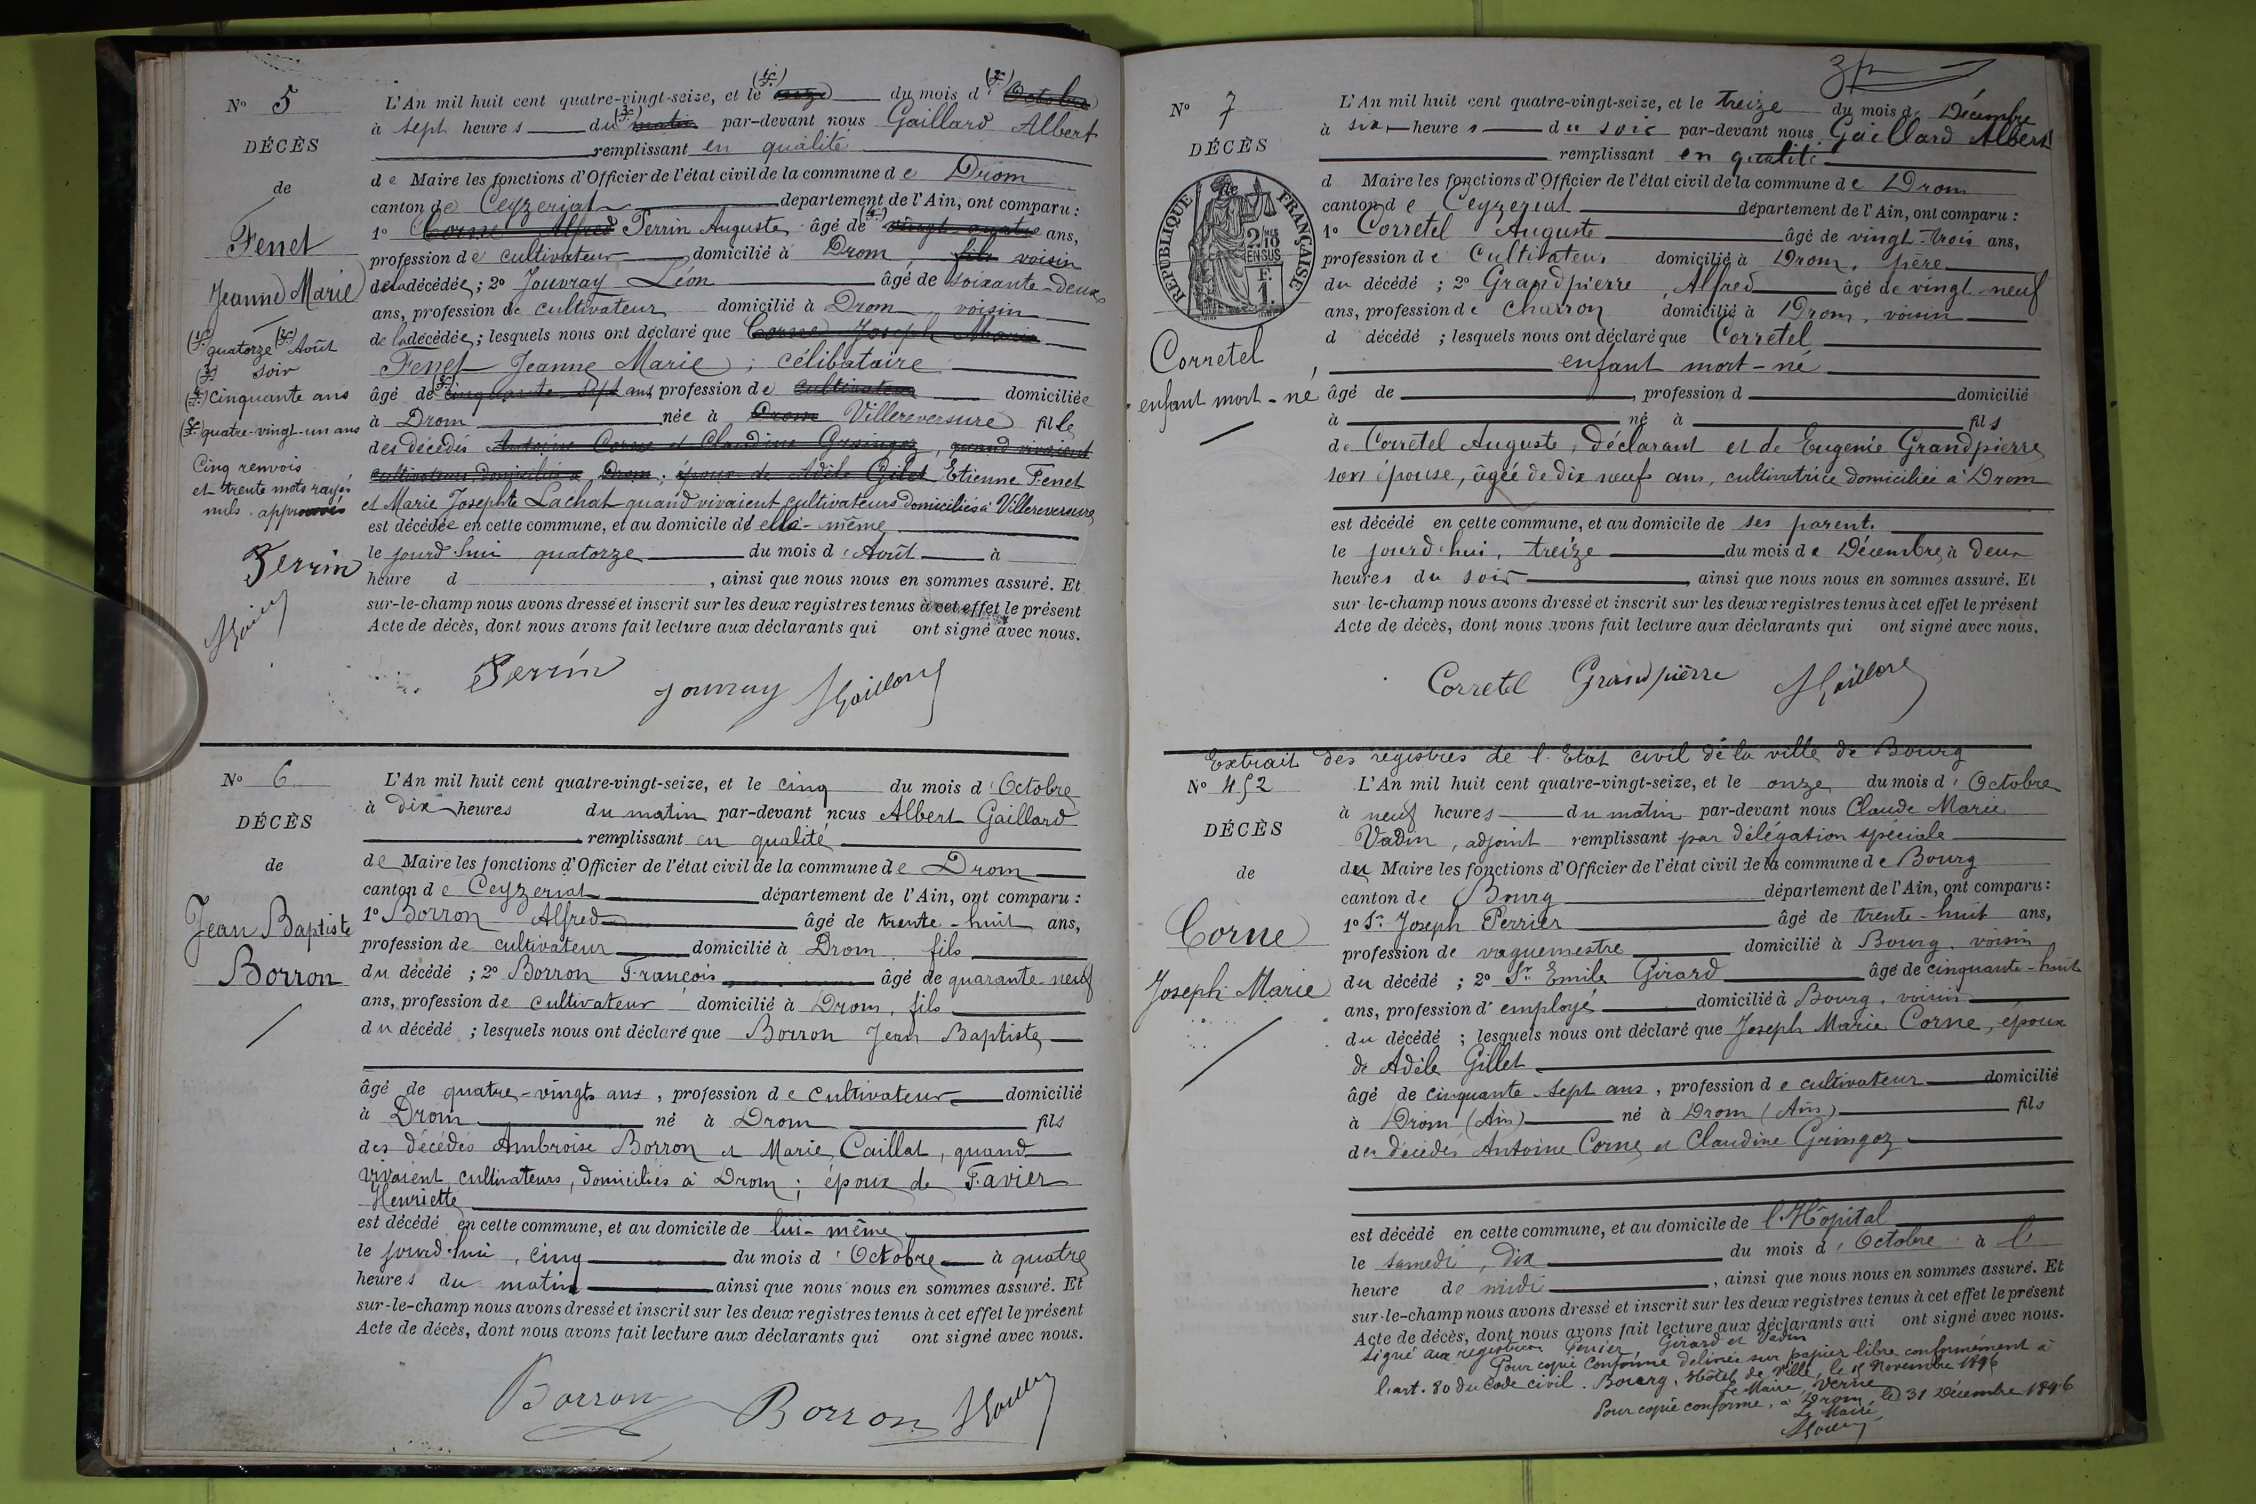 N° 5
DÉCÈS
de
Fenet
Jeanne Marie
(1) quatorze (2) Août
(3) soir
(4) cinquante ans
(5) quatre-vingt-un ans
Cinq renvois
et trente mots rayés
nuls approuvés
Perrin
L'An mil huit cent quatre-vingt-seize, et le (1) onze du mois d' (2) Octobre
à sept heures du (3) matin par-devant nous Gaillard Albert
remplissant en qualité
de Maire les fonctions d'Officier de l'état civil de la commune de Drom
canton de Ceyzeriat département de l'Ain, ont comparu :
1° Corne Alfred Perrin Auguste âgé de (4) vingt-quatre ans,
profession de cultivateur domicilié à Drom, fils voisin
de la décédée ; 2° Jouvray Léon âgé de soixante-deux
ans, profession de cultivateur domicilié à Drom voisin
de la décédée ; lesquels nous ont déclaré que Corne Joseph Marie
Fenet Jeanne Marie, célibataire
âgé de (5) cinquante sept ans profession de cultivateur domiciliée
à Drom née à Drom Villereversure fille
des décédés Antoine Corne et Claudine Gringoz, quand vivaient
cultivateurs domiciliés à Drom ; époux de Adèle Gilet Etienne Fenet
et Marie Josephte Lachat quand vivaient cultivateurs domiciliés à Villereversure
est décédée en cette commune, et au domicile d'elle-même
le jourd'hui quatorze du mois d'Août à
heure d , ainsi que nous nous en sommes assuré. Et
sur-le-champ nous avons dressé et inscrit sur les deux registres tenus à cet effet le présent
Acte de décès, dont nous avons fait lecture aux déclarants qui ont signé avec nous.
Perrin Jouvray AGaillard
N° 6
DÉCÈS
de
Jean Baptiste
Borron
L'An mil huit cent quatre-vingt-seize, et le cinq du mois d'Octobre
à dix heures du matin par-devant nous Albert Gaillard
remplissant en qualité
de Maire les fonctions d'Officier de l'état civil de la commune de Drom
canton de Ceyzeriat département de l'Ain, ont comparu :
1° Borron Alfred âgé de trente-huit ans,
profession de cultivateur domicilié à Drom, fils
du décédé ; 2° Borron François âgé de quarante-neuf
ans, profession de cultivateur domicilié à Drom, fils
du décédé ; lesquels nous ont déclaré que Borron Jean Baptiste
âgé de quatre-vingts ans, profession de cultivateur domicilié
à Drom né à Drom fils
des décédés Ambroise Borron et Marie Caillat, quand
vivaient cultivateurs, domiciliés à Drom ; époux de Favier
Henriette
est décédé en cette commune, et au domicile de lui-même
le jourd'hui, cinq du mois d'Octobre à quatre
heures du matin ainsi que nous nous en sommes assuré. Et
sur-le-champ nous avons dressé et inscrit sur les deux registres tenus à cet effet le présent
Acte de décès, dont nous avons fait lecture aux déclarants qui ont signé avec nous.
Borron Borron AGaillard
N° 7
DÉCÈS
de
RÉPUBLIQUE FRANÇAISE
2/10 EN SUS
Corretel
enfant mort-né
L'An mil huit cent quatre-vingt-seize, et le treize du mois de Décembre
à six heures du soir par-devant nous Gaillard Albert
remplissant en qualité
d Maire les fonctions d'Officier de l'état civil de la commune de Drom
canton de Ceyzeriat département de l'Ain, ont comparu :
1° Corretel Auguste âgé de vingt-trois ans,
profession de Cultivateur domicilié à Drom, père
du décédé ; 2° Grandpierre Alfred âgé de vingt neuf
ans, profession de Charron domicilié à Drom, voisin
d décédé ; lesquels nous ont déclaré que Corretel
enfant mort-né
âgé de , profession d domicilié
à né à fils
de Corretel Auguste, déclarant et de Eugenie Grandpierre
son épouse, âgée de dix neufs ans, cultivatrice domiciliée à Drom
est décédé en cette commune, et au domicile de ses parents
le jourd'hui, treize du mois de Décembre à deux
heures du soir , ainsi que nous nous en sommes assuré. Et
sur-le-champ nous avons dressé et inscrit sur les deux registres tenus à cet effet le présent
Acte de décès, dont nous avons fait lecture aux déclarants qui ont signé avec nous.
Corretel Grandpierre AGaillard
Extrait des registres de l'Etat civil de la ville de Bourg
N° 452
DÉCÈS
de
Corne
Joseph Marie
L'An mil huit cent quatre-vingt-seize, et le onze du mois d'Octobre
à neuf heures du matin par-devant nous Claude Marie
Vadin, adjoint remplissant par délégation spéciale
du Maire les fonctions d'Officier de l'état civil de la commune de Bourg
canton de Bourg département de l'Ain, ont comparu :
1° Sr Joseph Perrier âgé de trente-huit ans,
profession de vaguemestre domicilié à Bourg, voisin
du décédé ; 2° Sr Emile Girard âgé de cinquante-huit
ans, profession d'employé domicilié à Bourg, voisin
du décédé ; lesquels nous ont déclaré que Joseph Marie Corne, époux
de Adèle Gillet
âgé de cinquante sept ans, profession de cultivateur domicilié
à Drom (Ain) né à Drom (Ain) fils
des décédés Antoine Corne et Claudine Gringoz
est décédé en cette commune, et au domicile de l'Hôpital
le samedi, dix du mois d'Octobre à l'
heure de midi , ainsi que nous nous en sommes assuré. Et
sur-le-champ nous avons dressé et inscrit sur les deux registres tenus à cet effet le présent
Acte de décès, dont nous avons fait lecture aux déclarants qui ont signé avec nous.
signé aux registres Perrier, Girard et Vadin
Pour copie conforme délivrée sur papier libre conformément à
l'art. 80 du Code civil. Bourg, Hôtel de Ville, le 15 Novembre 1896
Le Maire, Verne
Pour copie conforme, à Drom, le 31 Décembre 1896
Le Maire
AGaillard